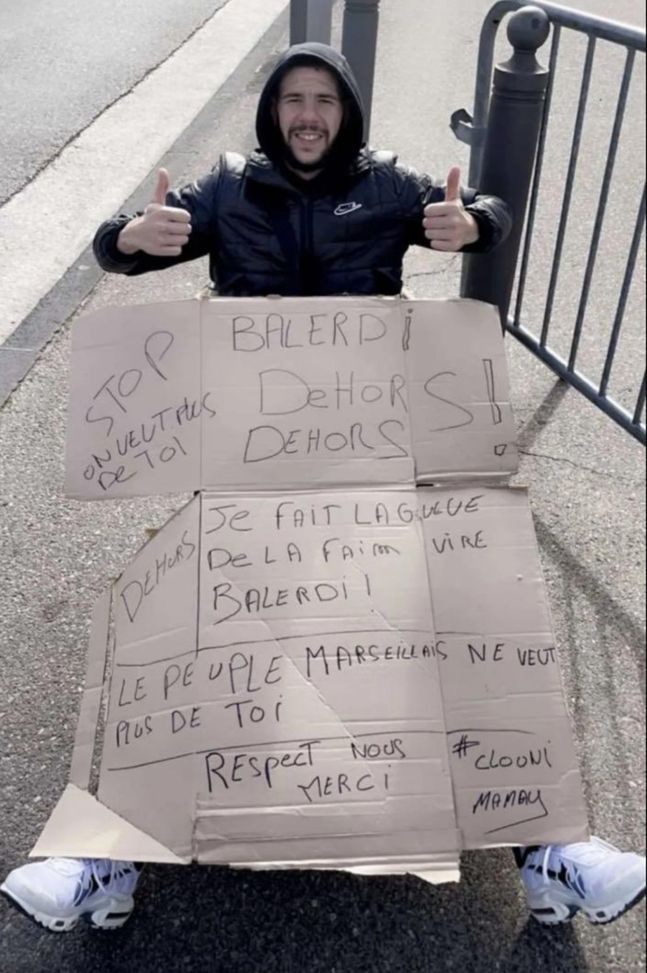 STOP
ON VEUT PLUS
DE TOI
BALERDI
DEHORS!
DEHORS
DEHORS
JE FAIT LA GUEUE
DE LA FAIM VIRE
BALERDI!
LE PEUPLE MARSEILLAIS NE VEUT
PLUS DE TOI
RESPECT NOUS
MERCI
#CLOUNI